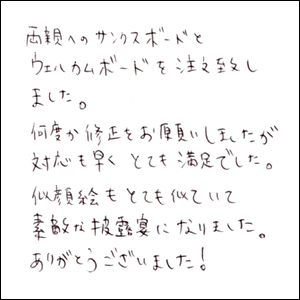 両親へのサンクスボードと
ウェルカムボードを注文致し
ました。
何度か修正をお願いしましたが
対応も早くとても満足でした。
似顔絵もとても似ていて
素敵な披露宴になりました。
ありがとうございました!